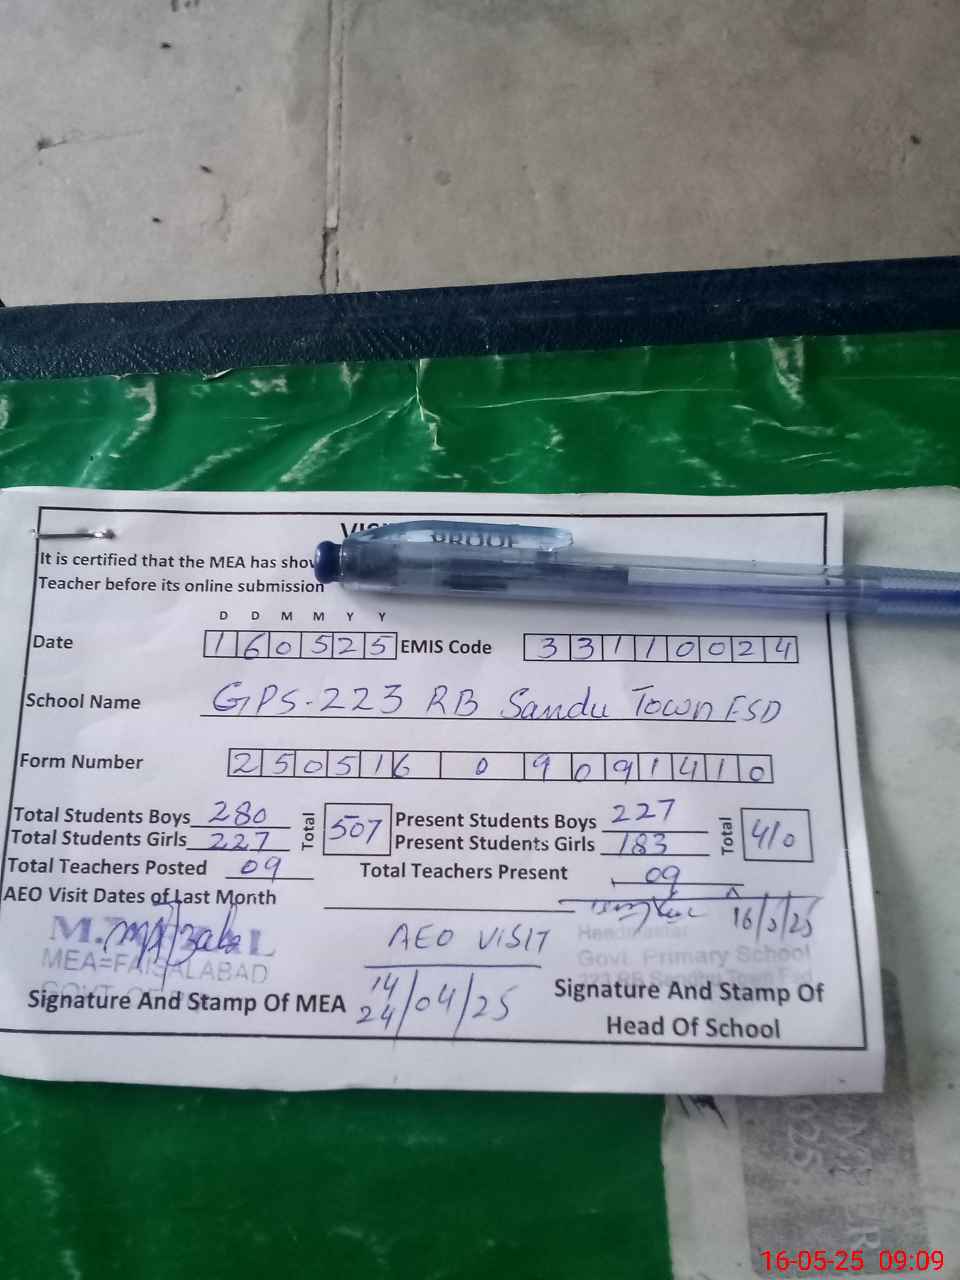 PROOF
It is certified that the MEA has
Teacher before its online submission
D D M M Y Y
Date 160525 EMIS Code 33110024
School Name GPS-223 RB Sandu Town FSD
Form Number 250516 0 90914 10
Total Students Boys 280 Total 507 Present Students Boys 227 Total 410
Total Students Girls 227 Present Students Girls 183
Total Teachers Posted 09 Total Teachers Present 09
AEO Visit Dates of Last Month
16/5/25
AEO VISIT
14
24/04/25
MEA=FAISALABAD
Headmaster
Govt. Primary School
Signature And Stamp Of MEA
Signature And Stamp Of
Head Of School
16-05-25 09:09